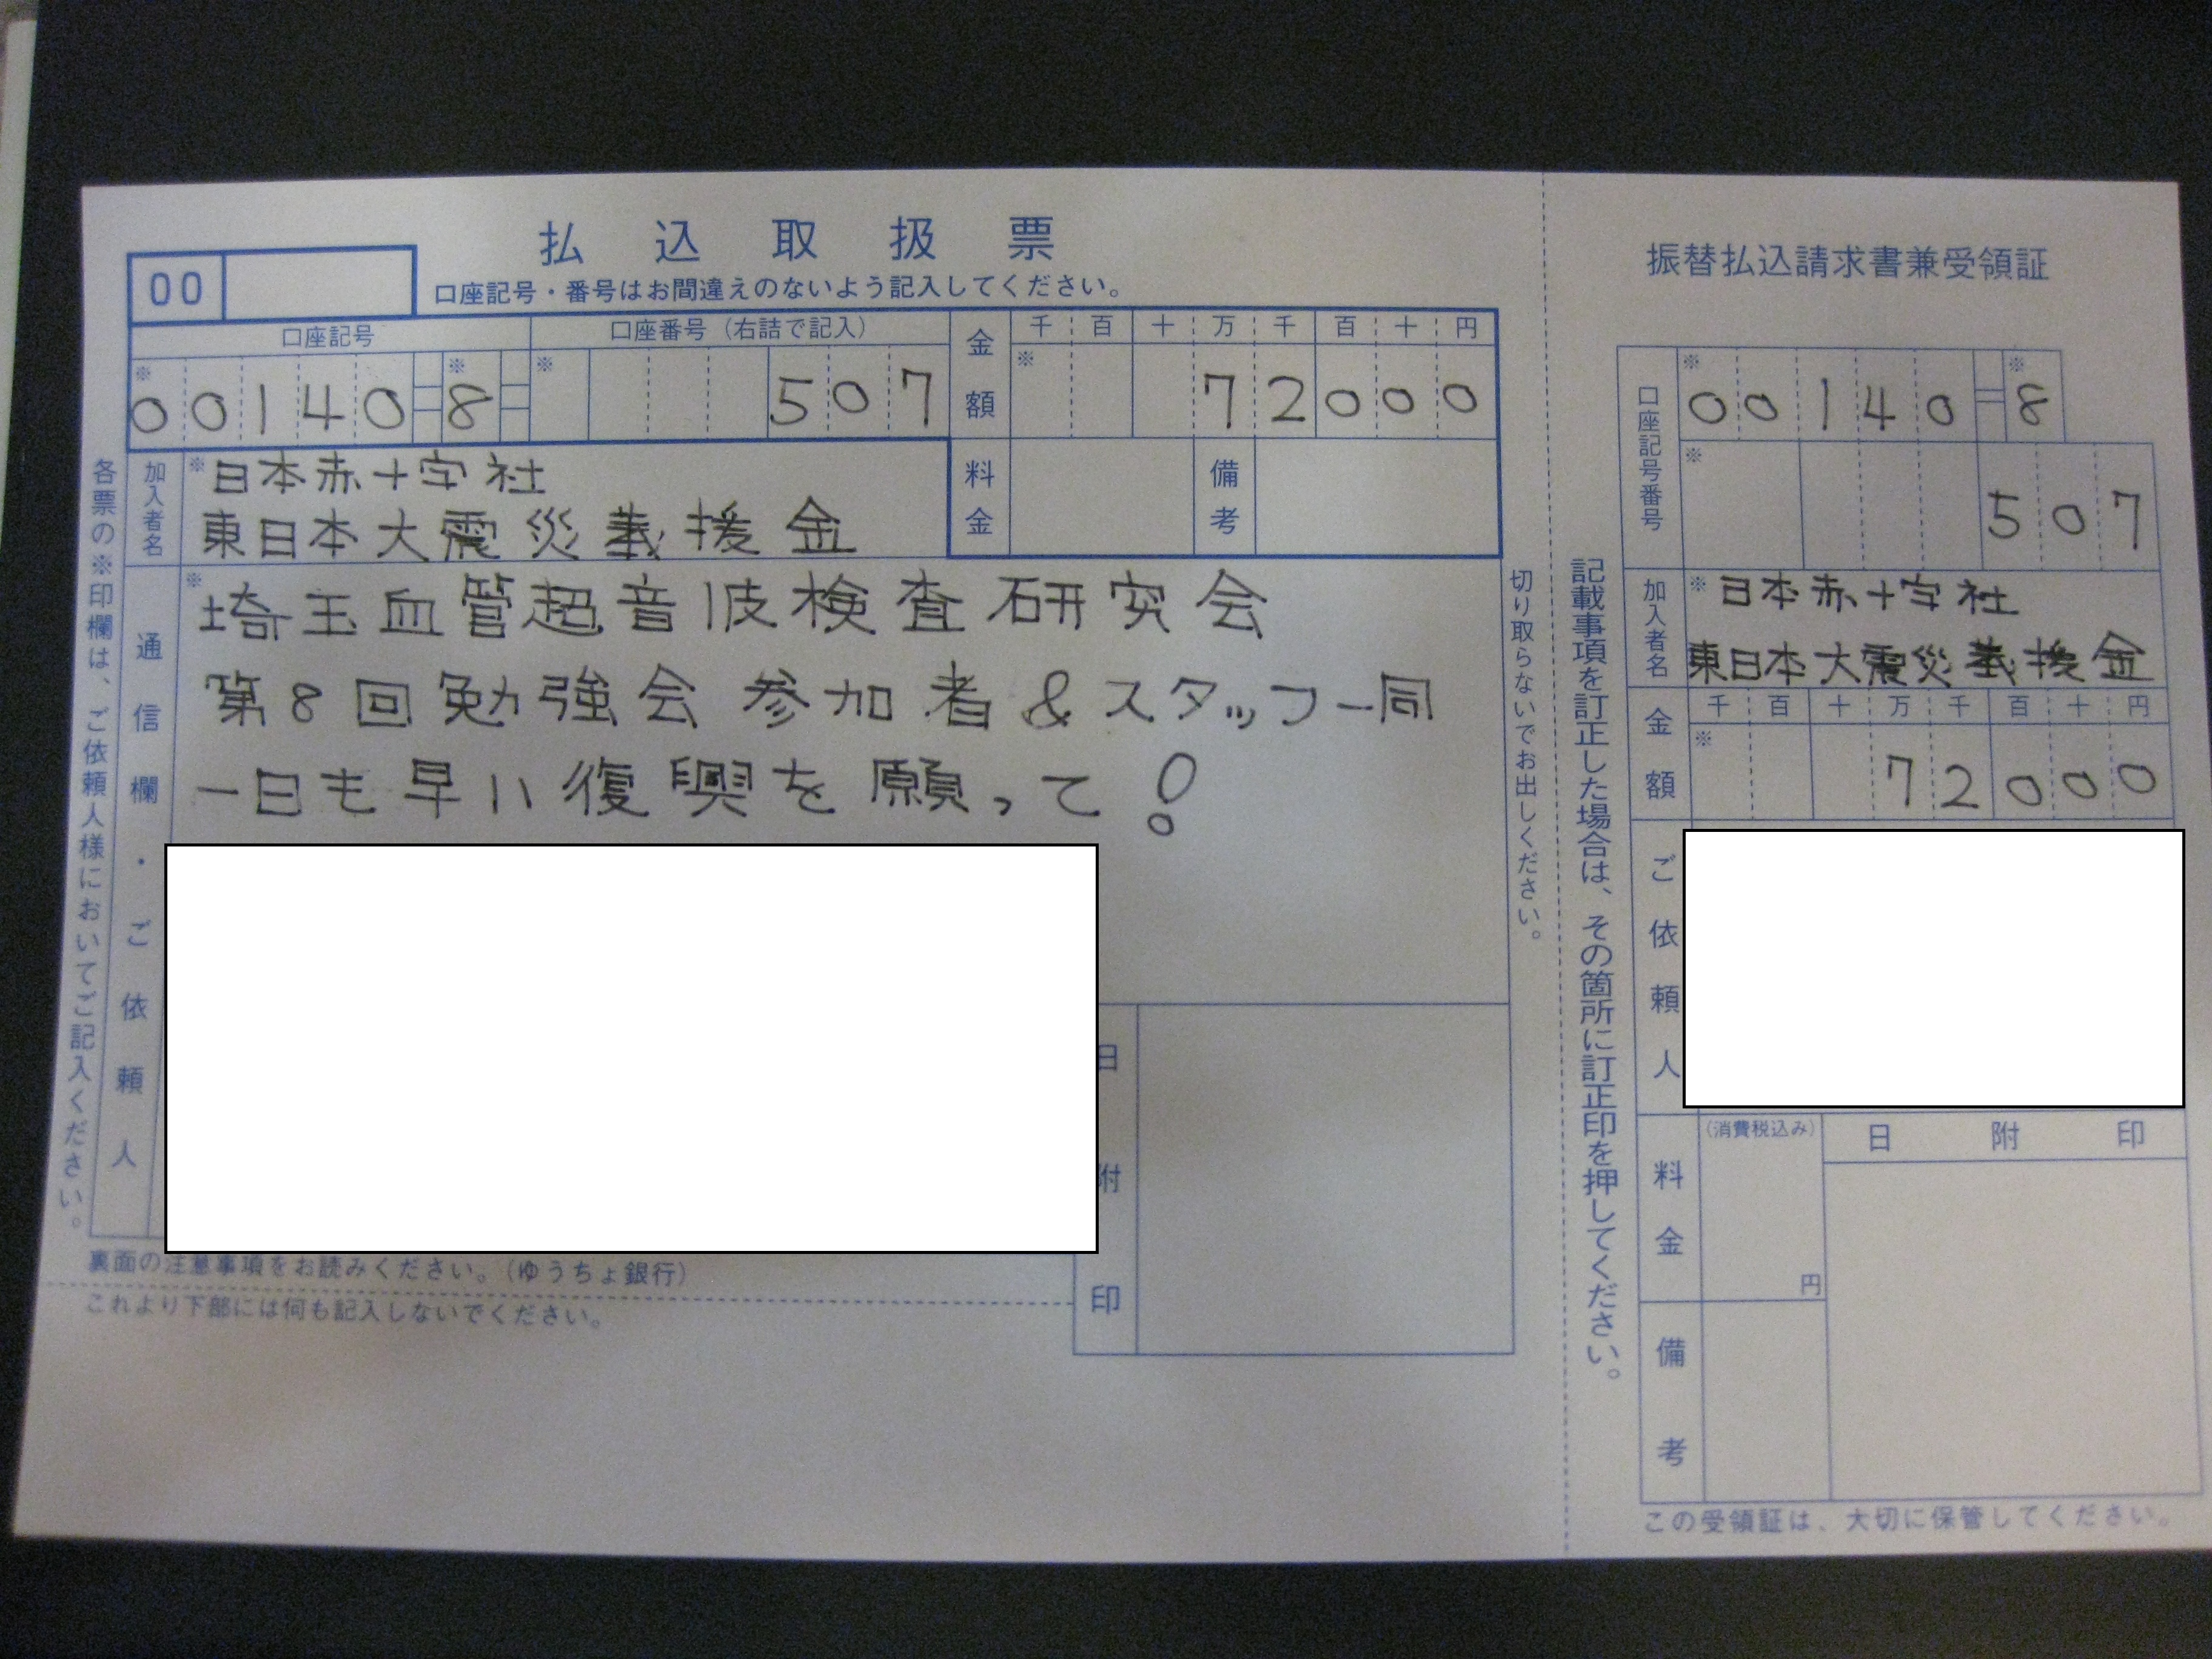 払込取扱票
00
口座記号・番号はお間違えのないよう記入してください。
口座記号
口座番号（右詰で記入）
金額
千 百 十 万 千 百 十 円
※ 00140 ※ 8
※ 507
※ 72000
加入者名
※ 日本赤十字社
東日本大震災義援金
料金
備考
通信欄・ご依頼人
※ 埼玉血管超音波検査研究会
第8回勉強会 参加者&スタッフ一同
一日も早い復興を願って!
日附印
各票の※印欄は、ご依頼人様においてご記入ください。
裏面の注意事項をお読みください。（ゆうちょ銀行）
これより下部には何も記入しないでください。
切り取らないでお出しください。
記載事項を訂正した場合は、その箇所に訂正印を押してください。
振替払込請求書兼受領証
口座記号番号
※ 00140 ※ 8
※ 507
加入者名
※ 日本赤十字社
東日本大震災義援金
金額
千 百 十 万 千 百 十 円
※ 72000
ご依頼人
料金
（消費税込み）
円
日附印
備考
この受領証は、大切に保管してください。